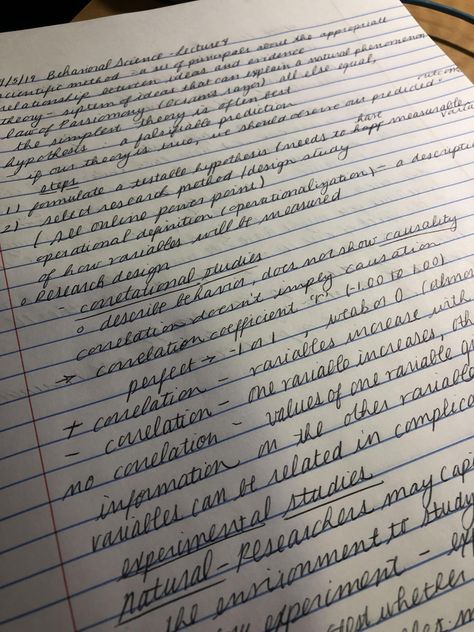 9/5/19 Behavioral Science - Lecture 4
scientific method - a set of principles about the appropriate
relationship between ideas and evidence
theory - system of ideas that can explain a natural phenomenon
law of Parsimony (Occam's razor) - all else equal,
the simplest theory is often best
hypothesis - a falsifiable prediction
- if our theory is true, we should observe our predicted outcome
steps
1) formulate a testable hypothesis (needs to have measurable
2) select research method/design study
(see online power point)
operational definition (operationalization) - a descripti
of how variables will be measured
o Research design
- correlational studies
o describe behavior, does not show causality
correlation doesn't imply causation
→ correlation coefficient "r" (-1.00 to 1.00)
perfect → -1 or 1, weak or 0 (almo
+ correlation - variables increase with
- correlation - one variable increases, oth
no correlation - values of one variable
information on the other variable
variables can be related in complica
experimental studies
natural - researchers may capi
the environment to study
experiment - ex
whether